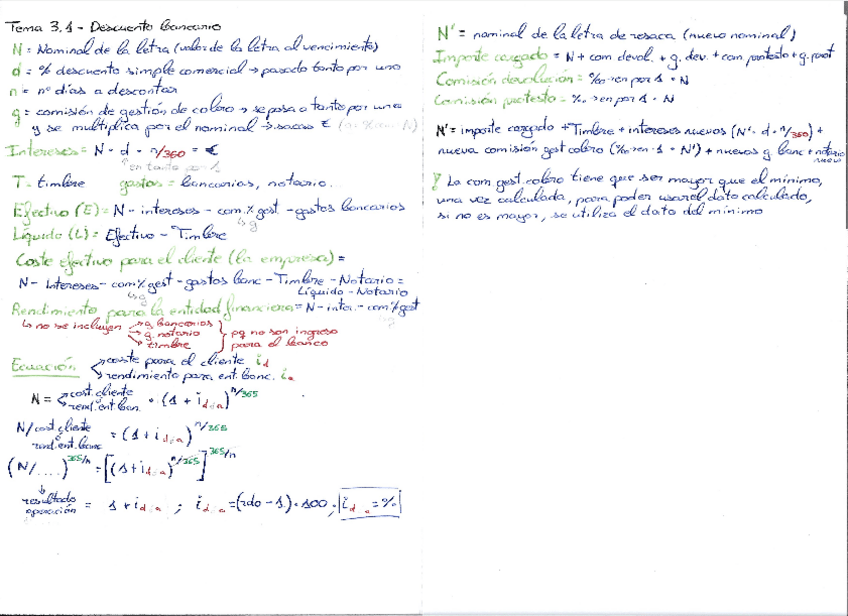 Tema 3.1 - Descuento bancario
N = Nominal de la letra (valor de la letra al vencimiento)
d = % descuento simple comercial → pasado tanto por uno
n = nº días a descontar
g = comisión de gestión de cobro → se pasa a tanto por uno
y se multiplica por el nominal → sacas € (g % com · N)
Intereses = N · d · n/360 = €
en tanto por 1
T = timbre gastos = bancarios, notario...
Efectivo (E) = N - intereses - com.% gest - gastos bancarios
↳ g
Líquido (L) = Efectivo - Timbre
Coste efectivo para el cliente (la empresa) =
N - Intereses - com% gest - gastos banc - Timbre - Notario =
↳ g Líquido - Notario
Rendimiento para la entidad financiera = N - inter. - com% gest
↳ no se incluyen → g. bancarios
→ g. notario
→ timbre
} pq no son ingreso
para el banco
Ecuación → coste para el cliente id
→ rendimiento para ent. banc. ia
N = cost. cliente
rend. ent. ban. · (1 + i d ó a) n/365
N/cost. cliente
rend. ent. banc = (1 + i d ó a) n/365
(N/....) 365/n = [(1 + i d ó a) n/365] 365/n
↓
resultado
operación = 1 + i d ó a ; i d ó a = (rdo - 1) · 100 ; i d ó a = %
N' = nominal de la letra de resaca (nuevo nominal)
Importe cargado = N + com devol. + g. dev. + com protesto + g. prot
Comisión devolución = ‰ → en por 1 · N
Comisión protesto = ‰ → en por 1 · N
N' = importe cargado + Timbre + intereses nuevos (N' · d · n/360) +
nueva comisión gest cobro (‰ en · 1 · N') + nuevos g banc + notario
nuevo
La com gest cobro tiene que ser mayor que el mínimo,
una vez calculada, para poder usar el dato calculado,
si no es mayor, se utiliza el dato del mínimo